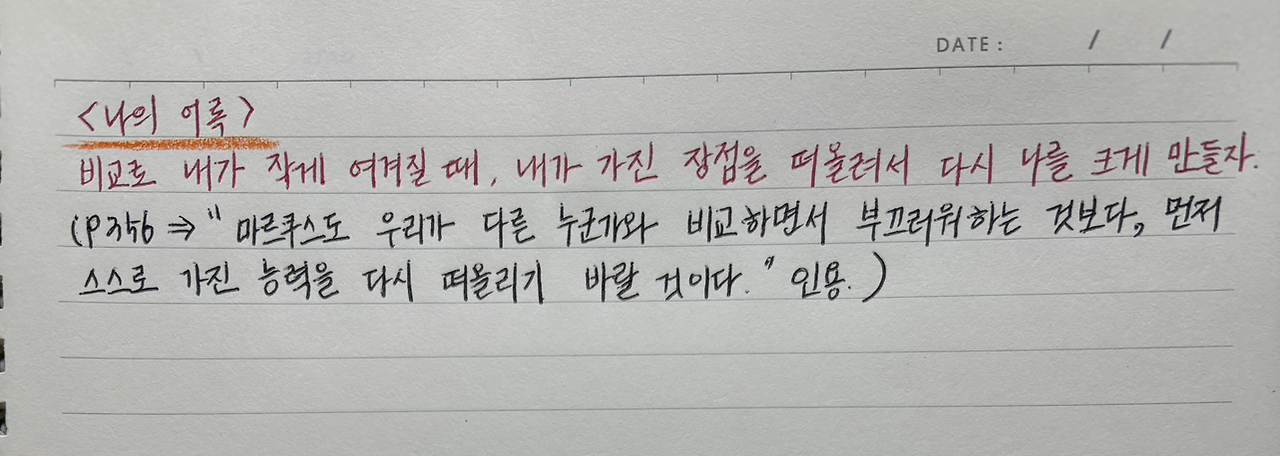 DATE : / /
<나의 어록>
비교로 내가 작게 여겨질 때, 내가 가진 장점을 떠올려서 다시 나를 크게 만들자.
(P356 ⇒ "마르쿠스도 우리가 다른 누군가와 비교하면서 부끄러워하는 것보다, 먼저
스스로 가진 능력을 다시 떠올리기 바랄 것이다." 인용.)